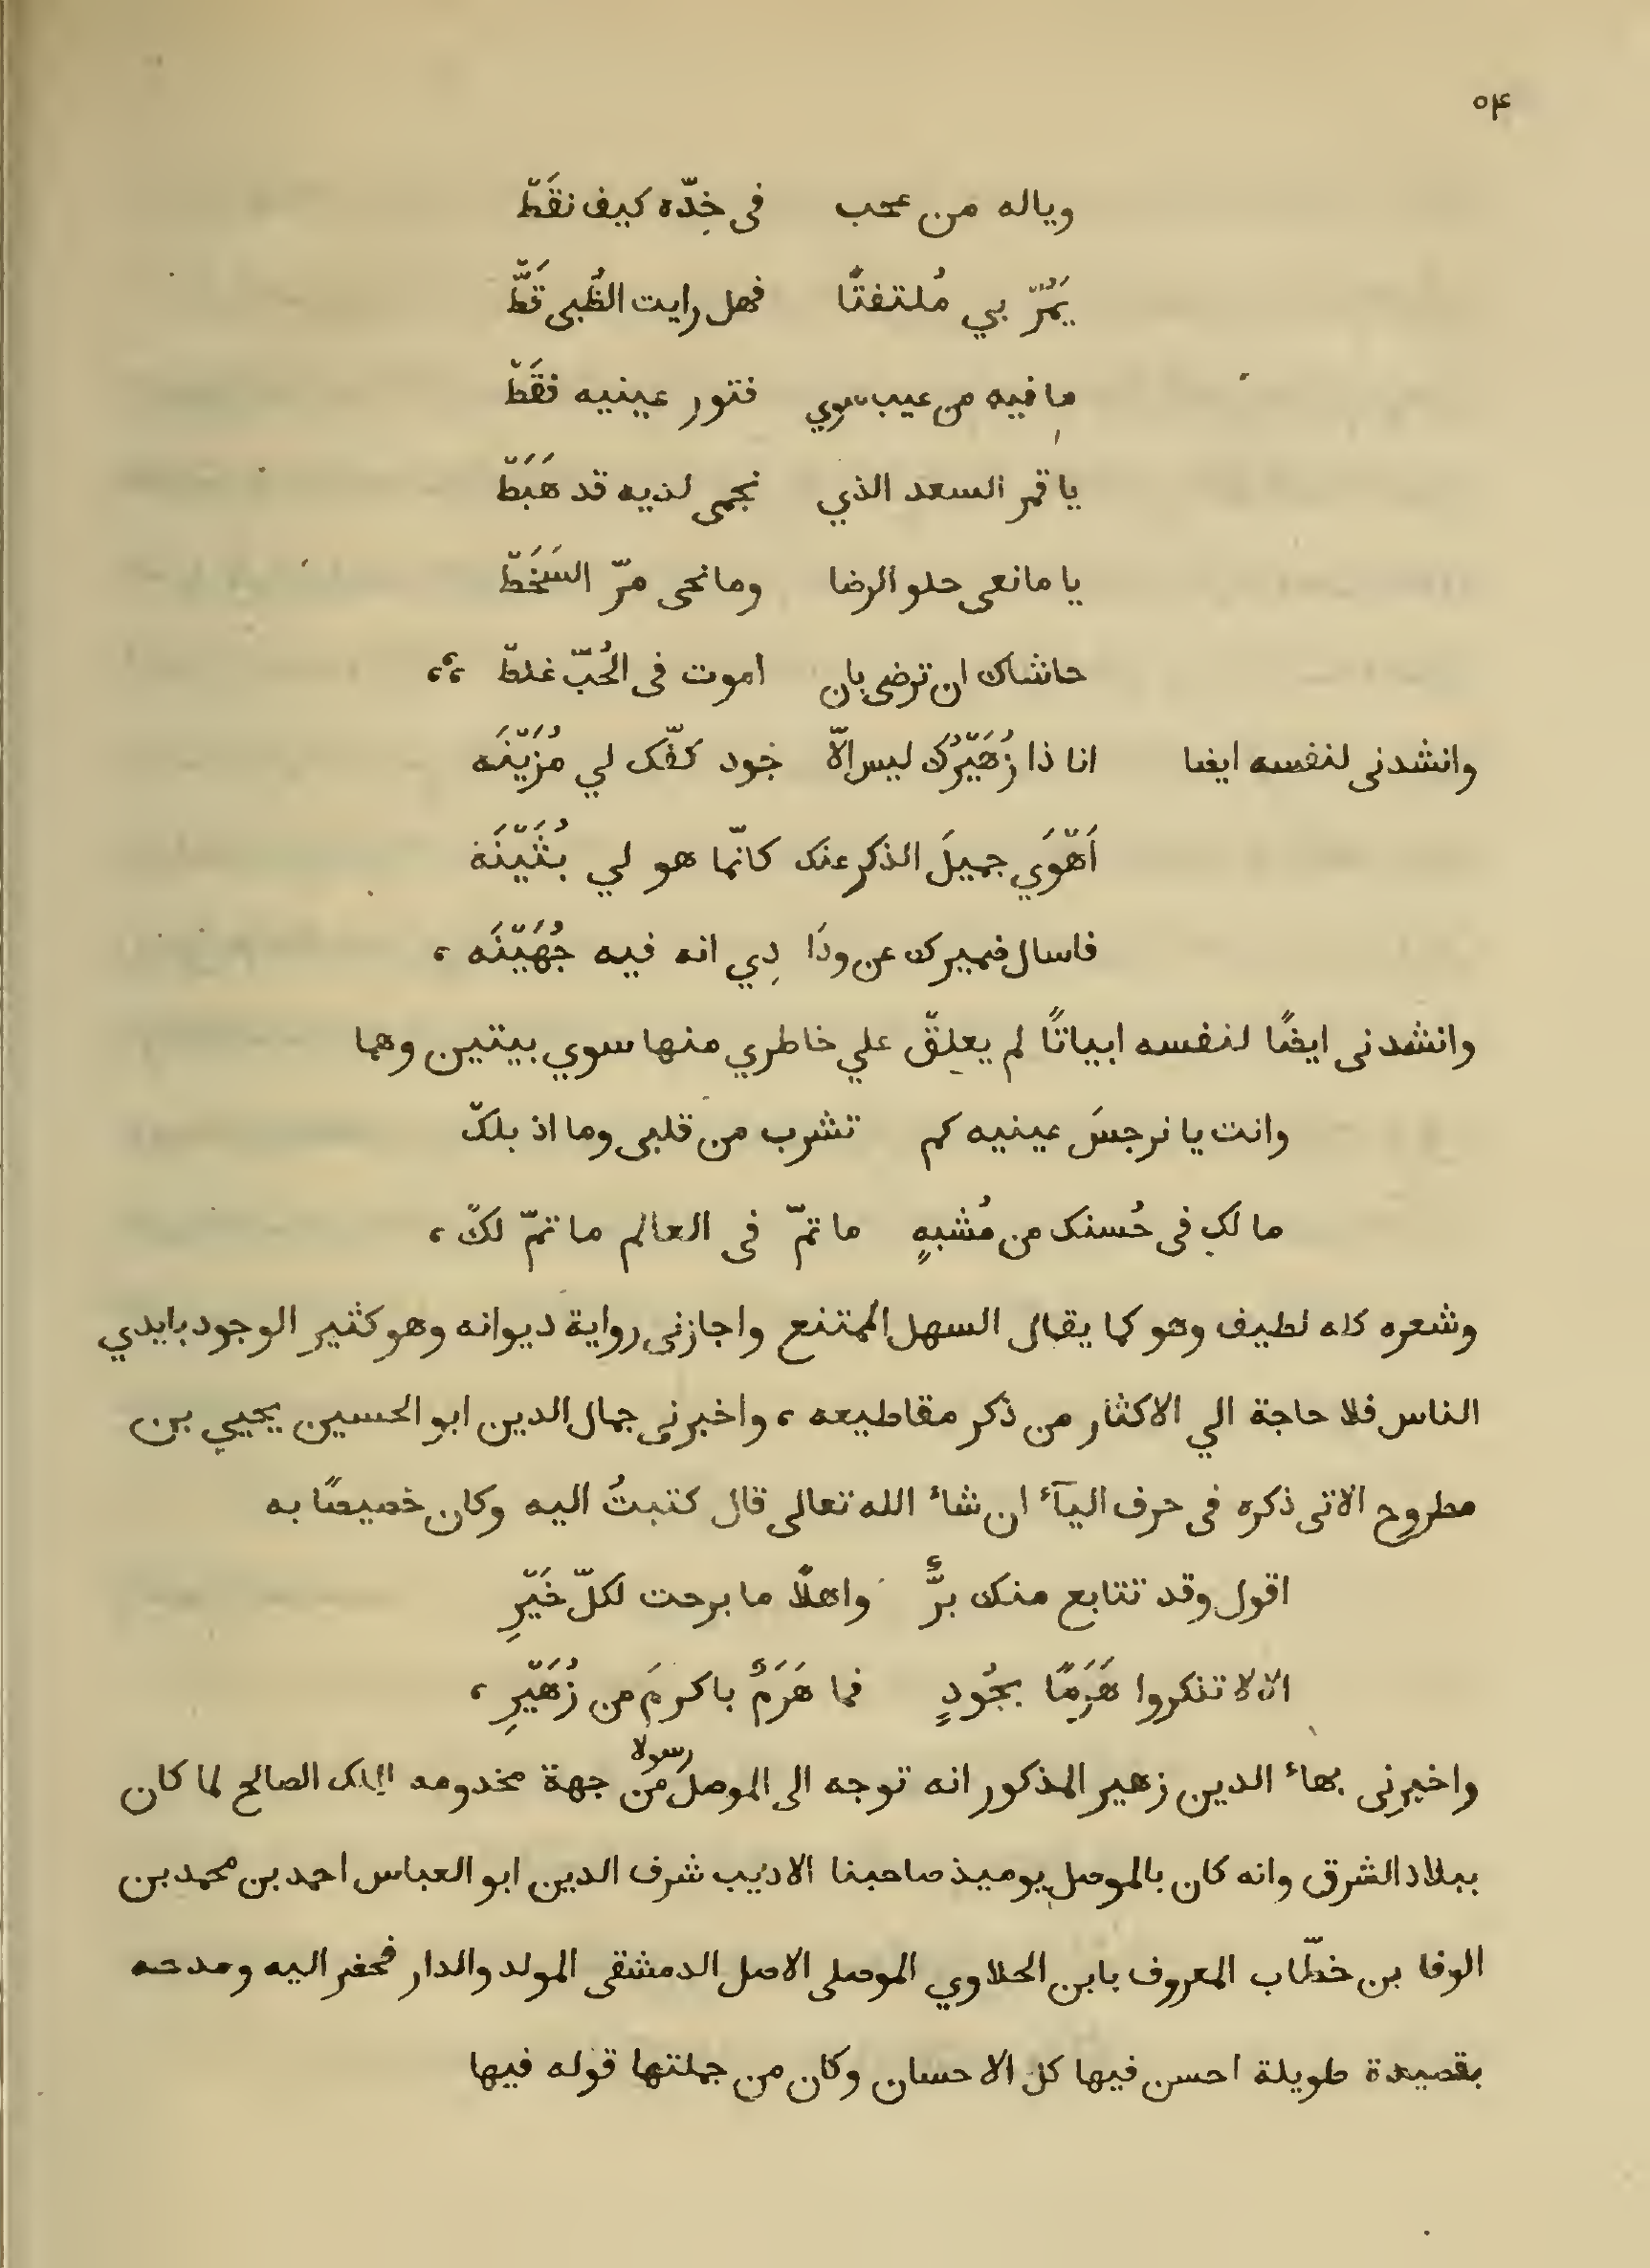 ٥۴
وياله من عجب في خدّه كيف نقَطْ
يَمُرّ بي مُلتفتًا فهل رايت الظبي قَطّْ
ما فيه من عيب سوي فتور عينيه فقَطْ
يا قمر السعد الذي نجمي لديه قد هَبَطْ
يا مانعي حلو الرضا ومانحي مرّ السَخَطْ
حاشاك ان ترضي بان اموت في الحُبّ غلطْ ،،
وانشدني لنفسه ايضا انا ذا زُهَيْرُك ليس الّا جود كفّك لي مُزَيْنَه
اَهْوَي جميلَ الذكر عنك كانّما هو لي بُثَيْنَة
فاسال ضميرك عن ودَا دِي انه فيه جُهَيْنَه ،
وانشدني ايضًا لنفسه ابياتًا لم يعلقْ علي خاطري منها سوي بيتين وهما
وانت يا نرجسَ عينيه كم تشرب من قلبي وما اذبلكْ
ما لك في حُسنك من مُشبهٍ ما تمّ في العالم ما تمّ لكْ ،
وشعره كله لطيف وهو كما يقال السهل الممتنع واجازني رواية ديوانه وهو كثير الوجود بايدي
الناس فلا حاجة الي الاكثار من ذكر مقاطيعه ، واخبرني جمال الدين ابو الحسين يحيي بن
مطروح الاتي ذكره في حرف اليآء ان شاء الله تعالي قال كتبتُ اليه وكان خصيصًا به
اقول وقد تتابع منك برٌّ واهلًا ما برحت لكلّ خَيْرِ
الا لا تذكروا هَرَمًا بجُودٍ فما هَرَمٌ باكرمَ من زُهَيْرِ ،
واخبرني بهاء الدين زهير المذكور انه توجه الي الموصل رسولا من جهة مخدومه الملك الصالح لما كان
ببلاد الشرق وانه كان بالموصل يوميذ صاحبنا الاديب شرف الدين ابو العباس احمد بن محمد بن
الوفا بن خطّاب المعروف بابن الحلاوي الموصلي الاصل الدمشقي المولد والدار فحضر اليه ومدحه
بقصيدة طويلة احسن فيها كل الاحسان وكان من جملتها قوله فيها